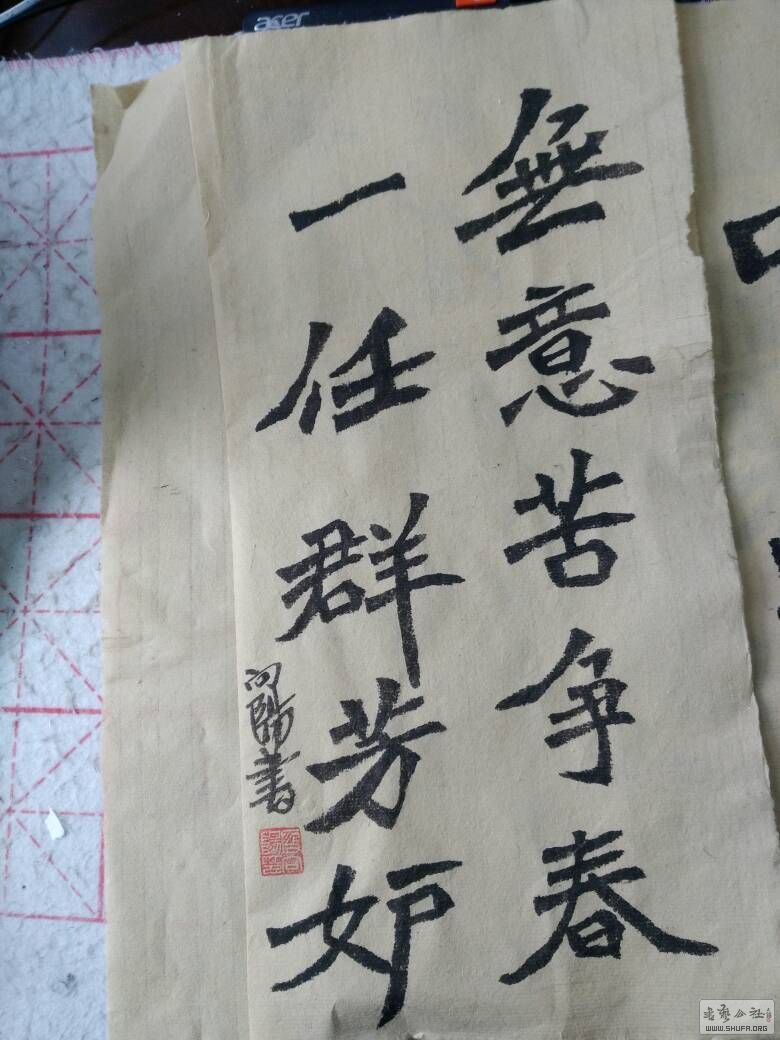 無意苦争春
一任群芳妒
向陽書
acer
書藝公社
WWW.SHUFA.ORG